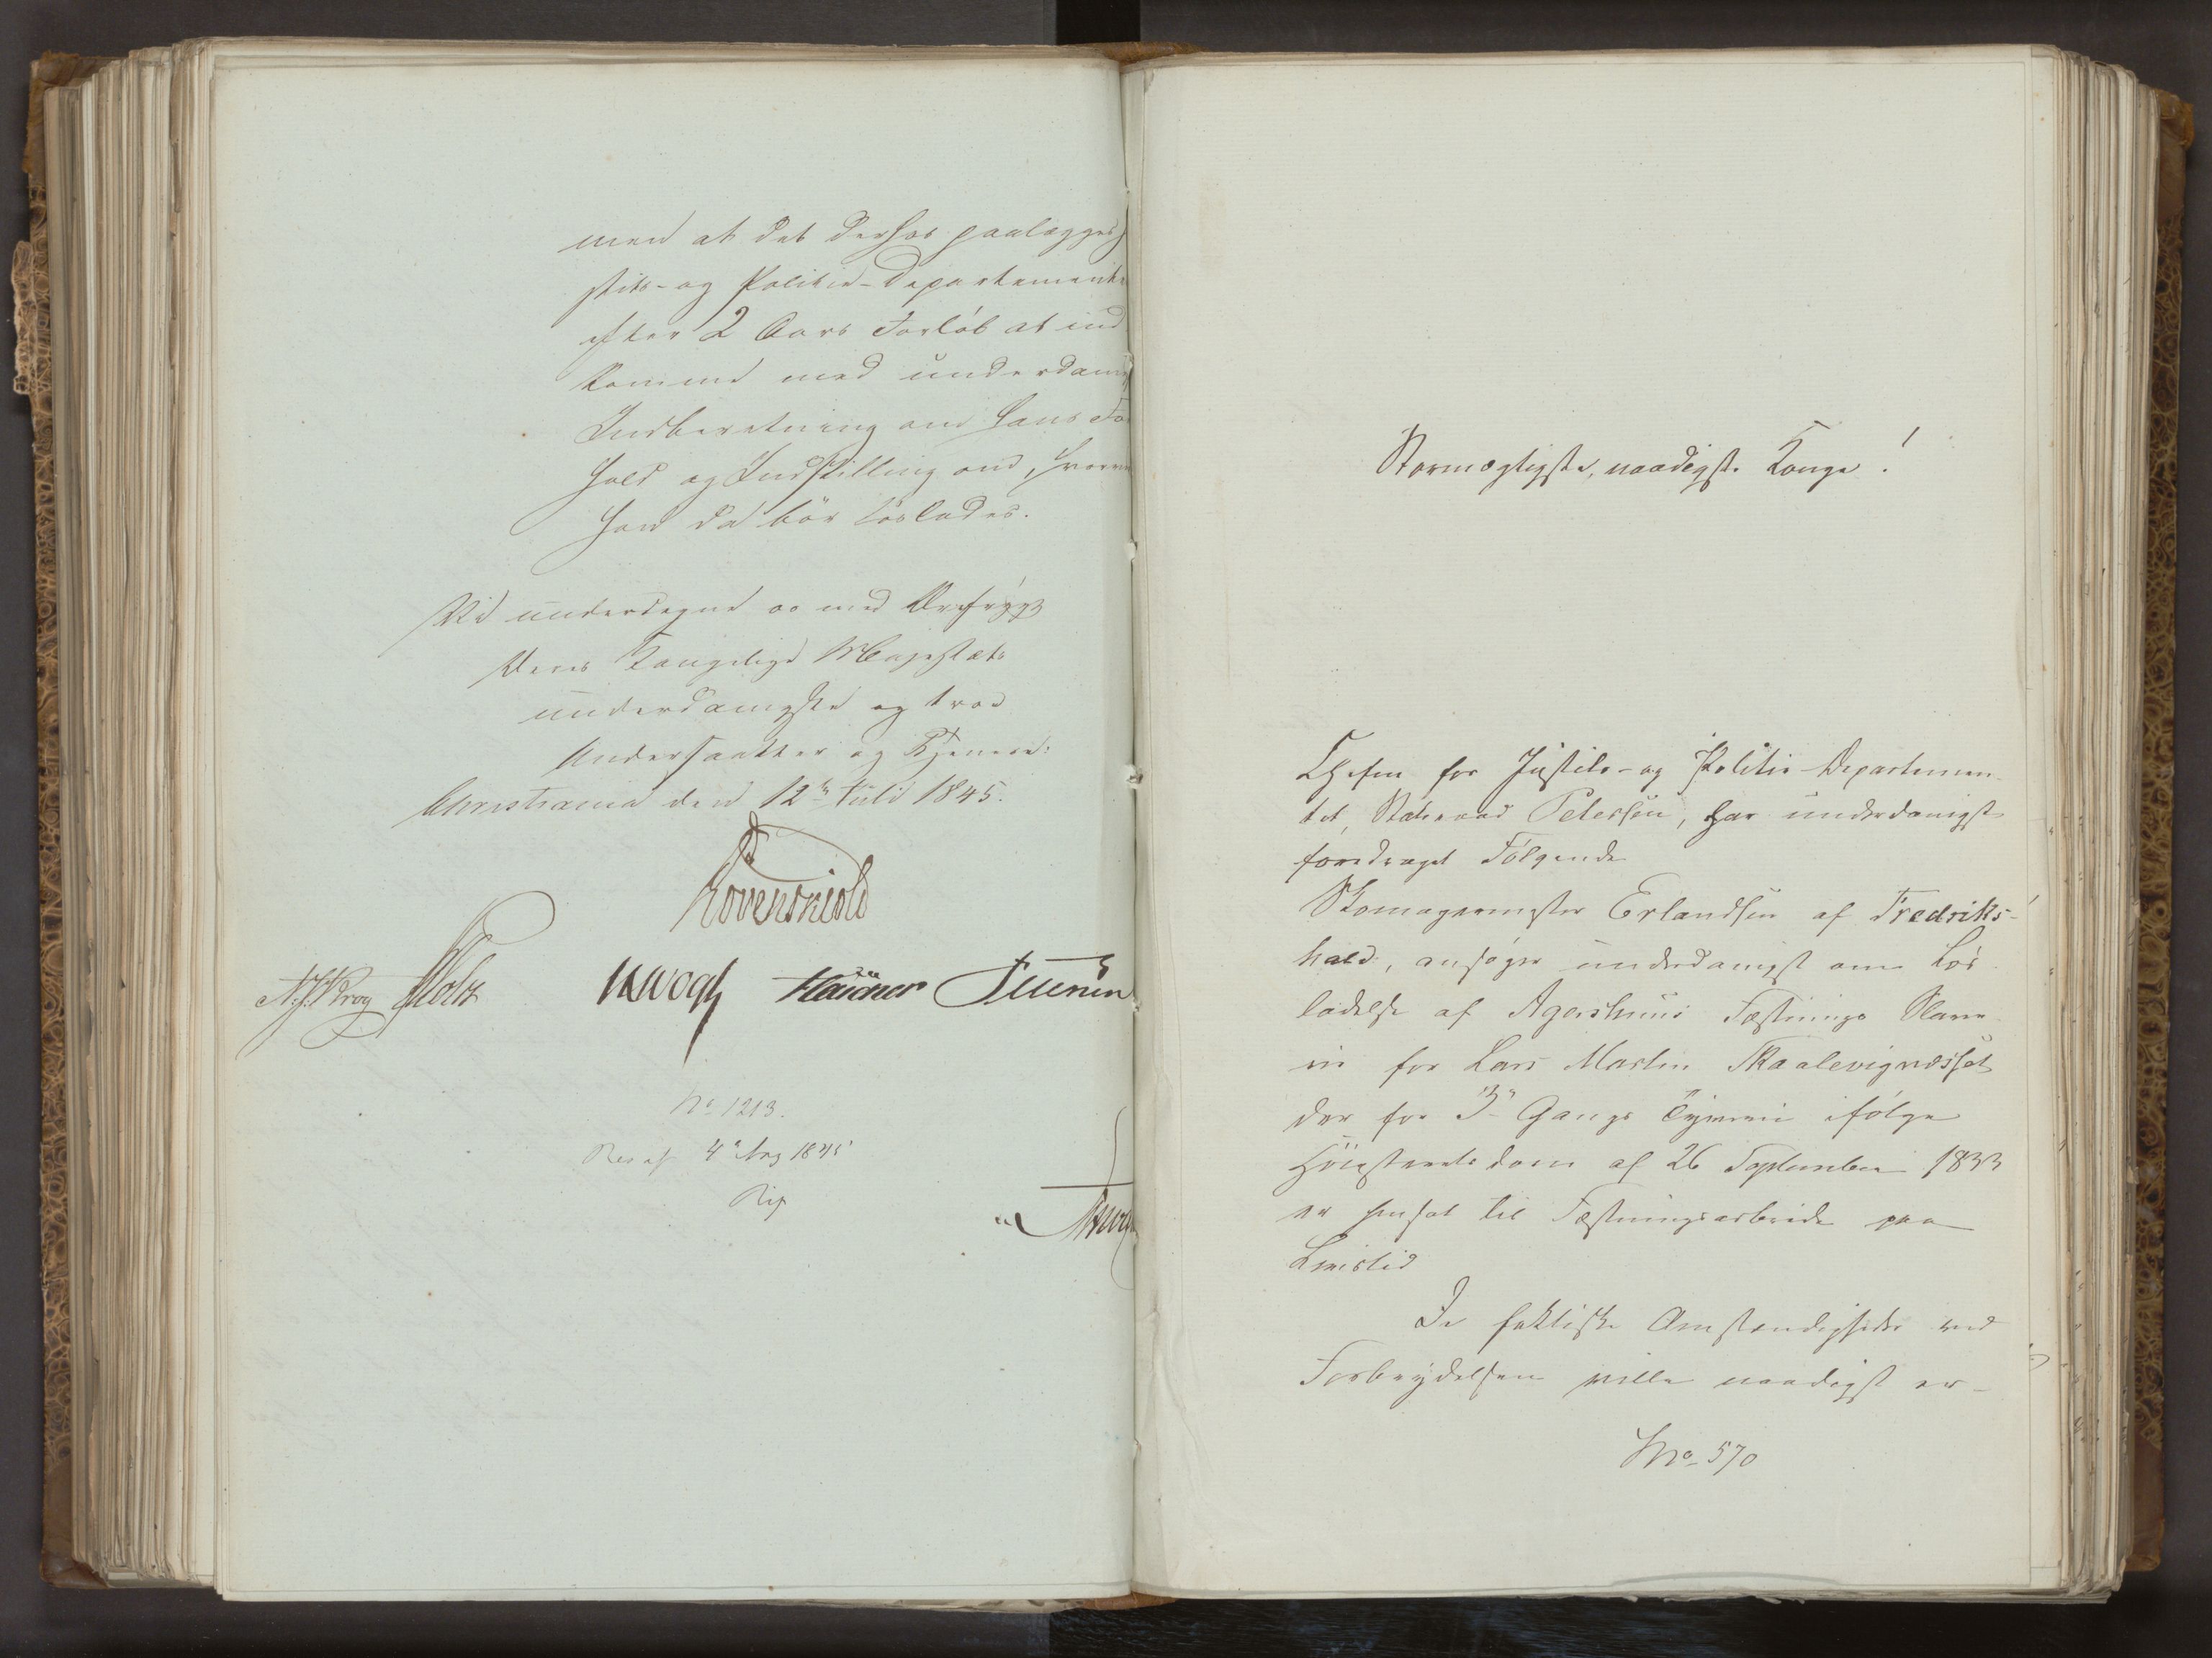 men at det derhos paalægges J
stits- og Politie-Departemente
efter 2 Aars Forløb at ind
komme med underdanig
Indberetning om hans For
hold og Indstilling om, hvorv
han da bør løslades.
Vi undertegne os med Ærefrygt
Deres Kongelige Majestæts
underdanigste og troe
Undersaatter og Tjenere:
Christiania den 12te Juli 1845.
Løvenskiold
N. J. Krog Holst JH Vogt
No 1213.
Res af 4de Aug 1845
Stormægtigste, naadigste Konge!
Chefen for Justits- og Politie-Departemen-
tet, Statsraad Petersen, har underdanigst
foredraget Følgende
Skomagermester Erlandsen af Fredriks-
hald, ansøger underdanigst om Løs-
ladelse af Agershuus Fæstnings Slave-
rie for Lars Martin Skaalevignæsset
der for 3die Gangs Tyverie ifølge
Høiesteretsdom af 26 September 1833
er hensat til Fæstningsarbeide paa
Livstid
De faktiske Omstændigheder ved
Forbrydelsen ville naadigst er-
No 570